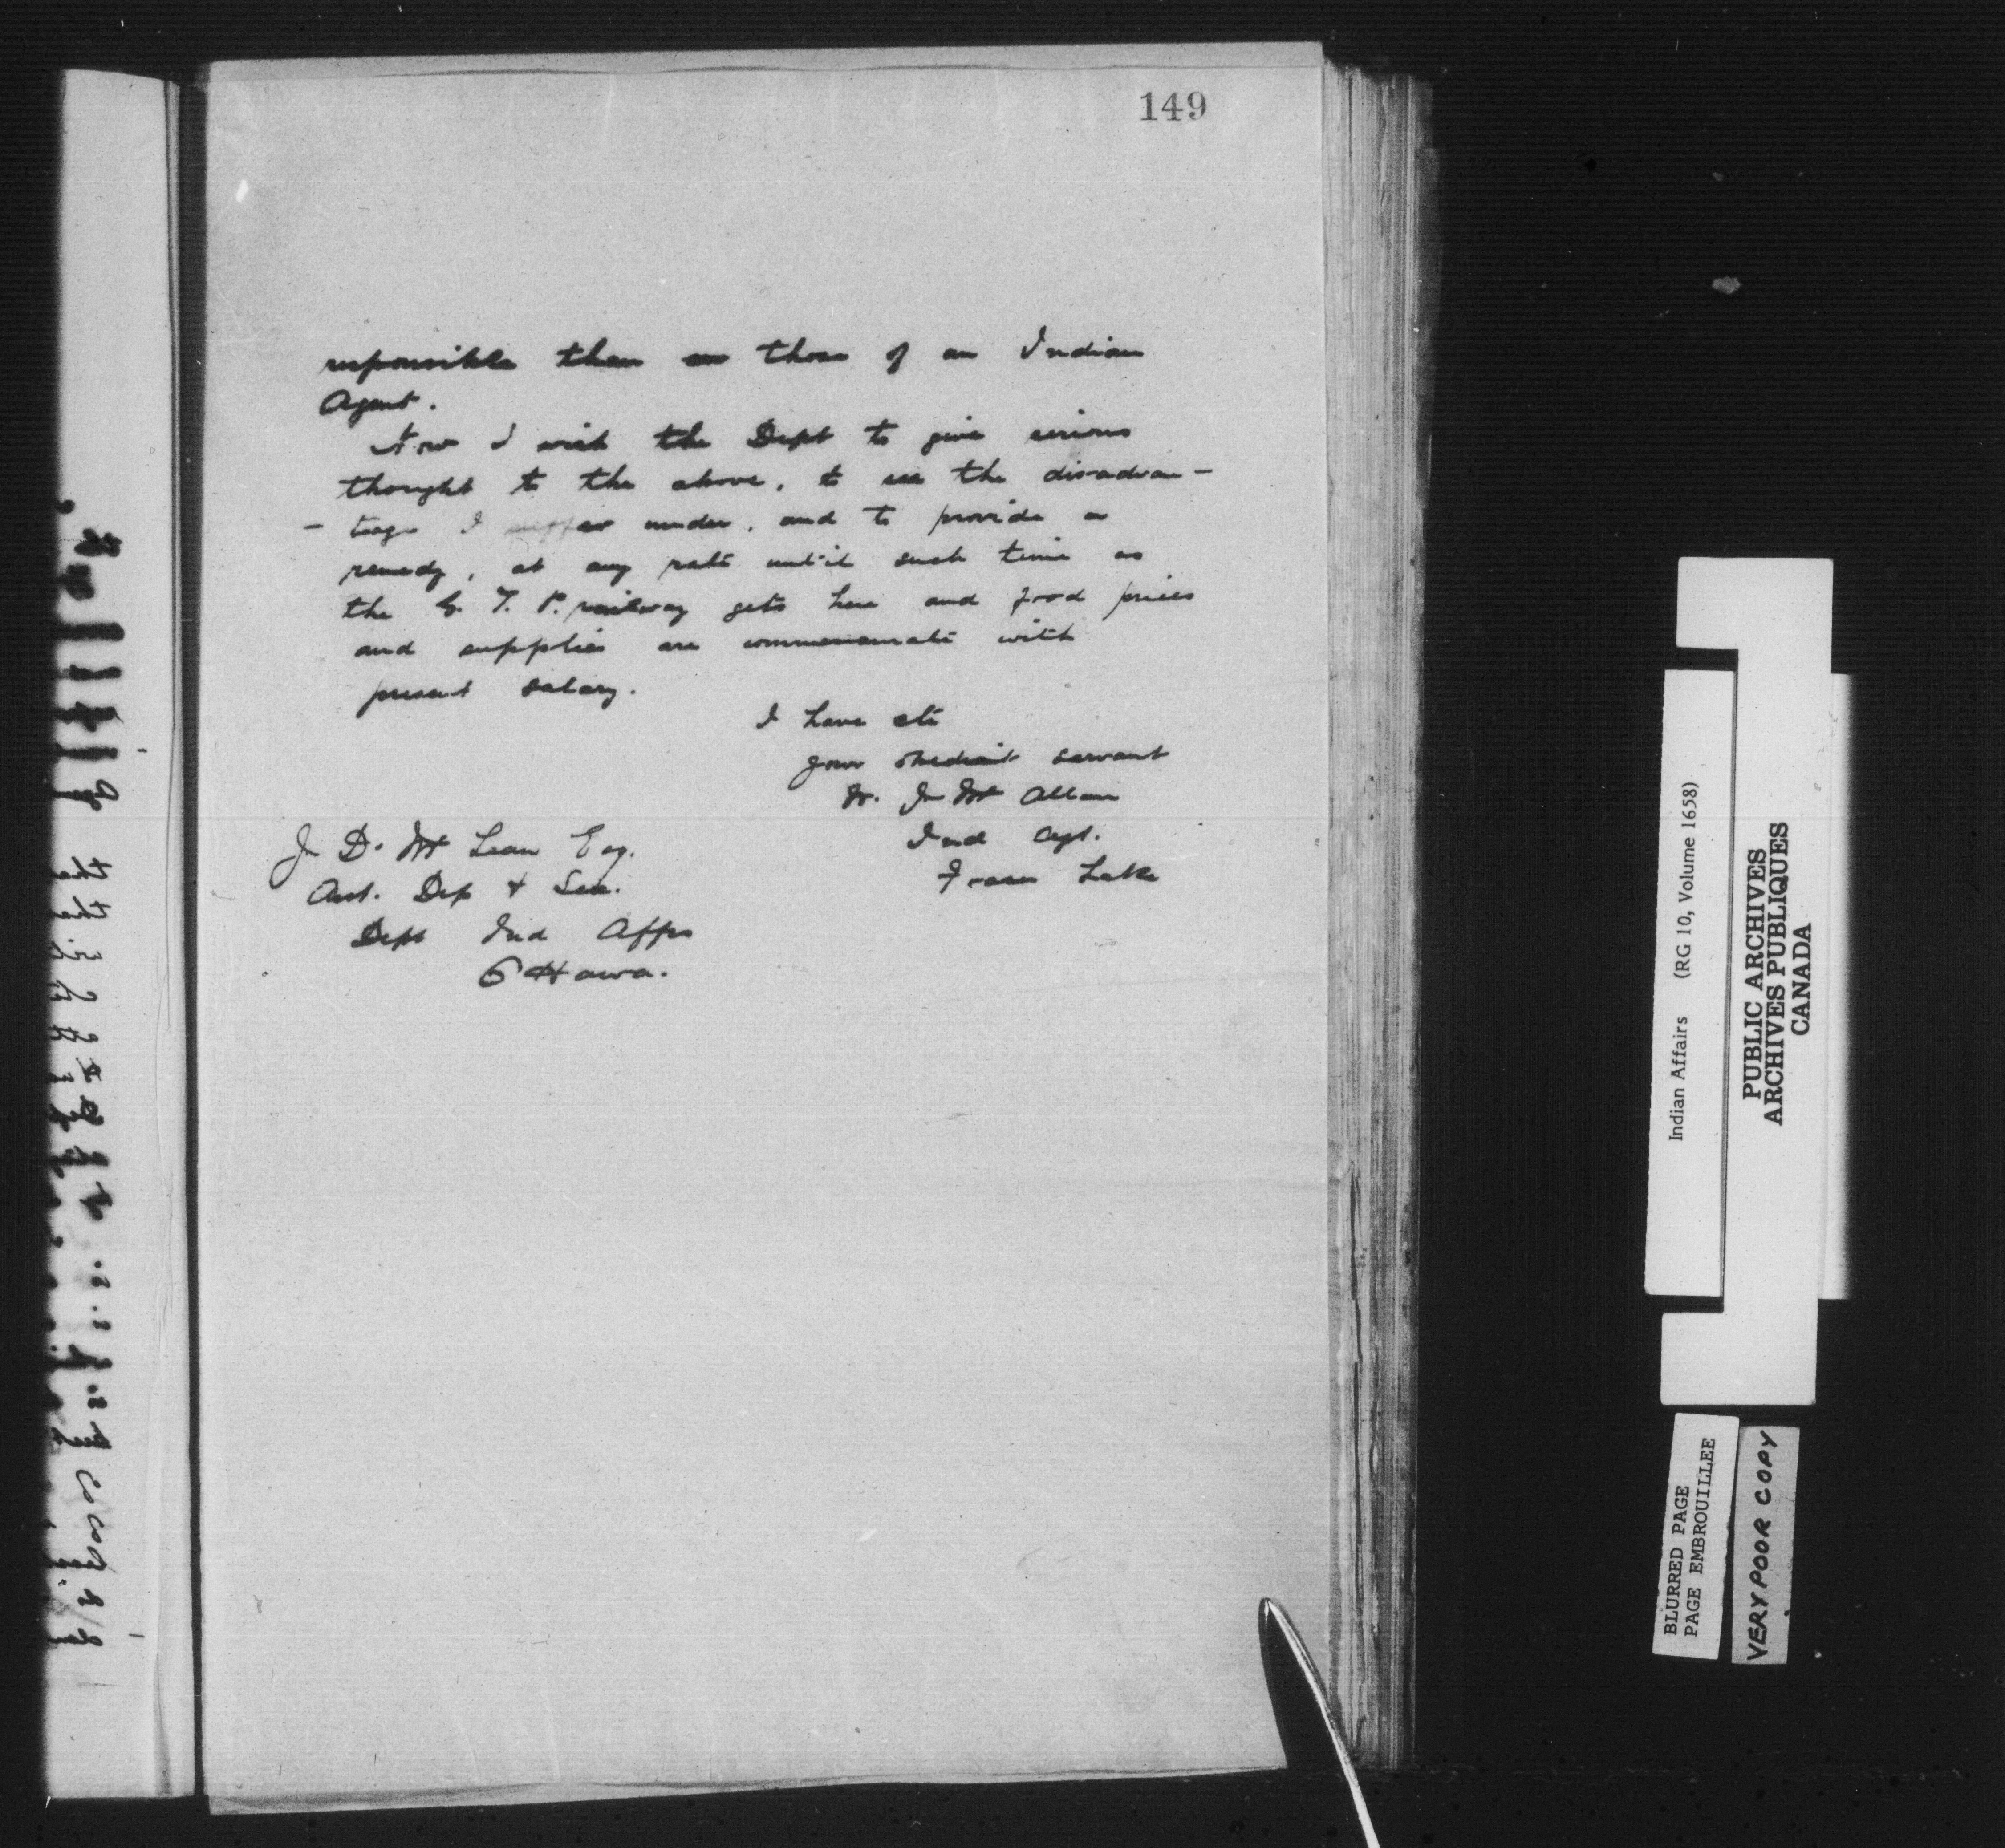 149
responsible than those of an Indian
Agent.
Now I wish the Dept to give serious
thought to the above, to see the disadvan-
- tage I suffer under, and to provide a
remedy, at any rate until such time as
the G. T. P. railway gets here and food prices
and supplies are commensurate with
present salary.
I have etc
your obedient servant
W. J. Mc Allan
Ind Agt.
Fraser Lake
J. D. Mc Lean Esq.
Asst. Dep & Sec.
Dept Ind Affrs
Ottawa.
Indian Affairs (RG 10, Volume 1658)
PUBLIC ARCHIVES
ARCHIVES PUBLIQUES
CANADA
BLURRED PAGE
PAGE EMBROUILLEE
VERY POOR COPY